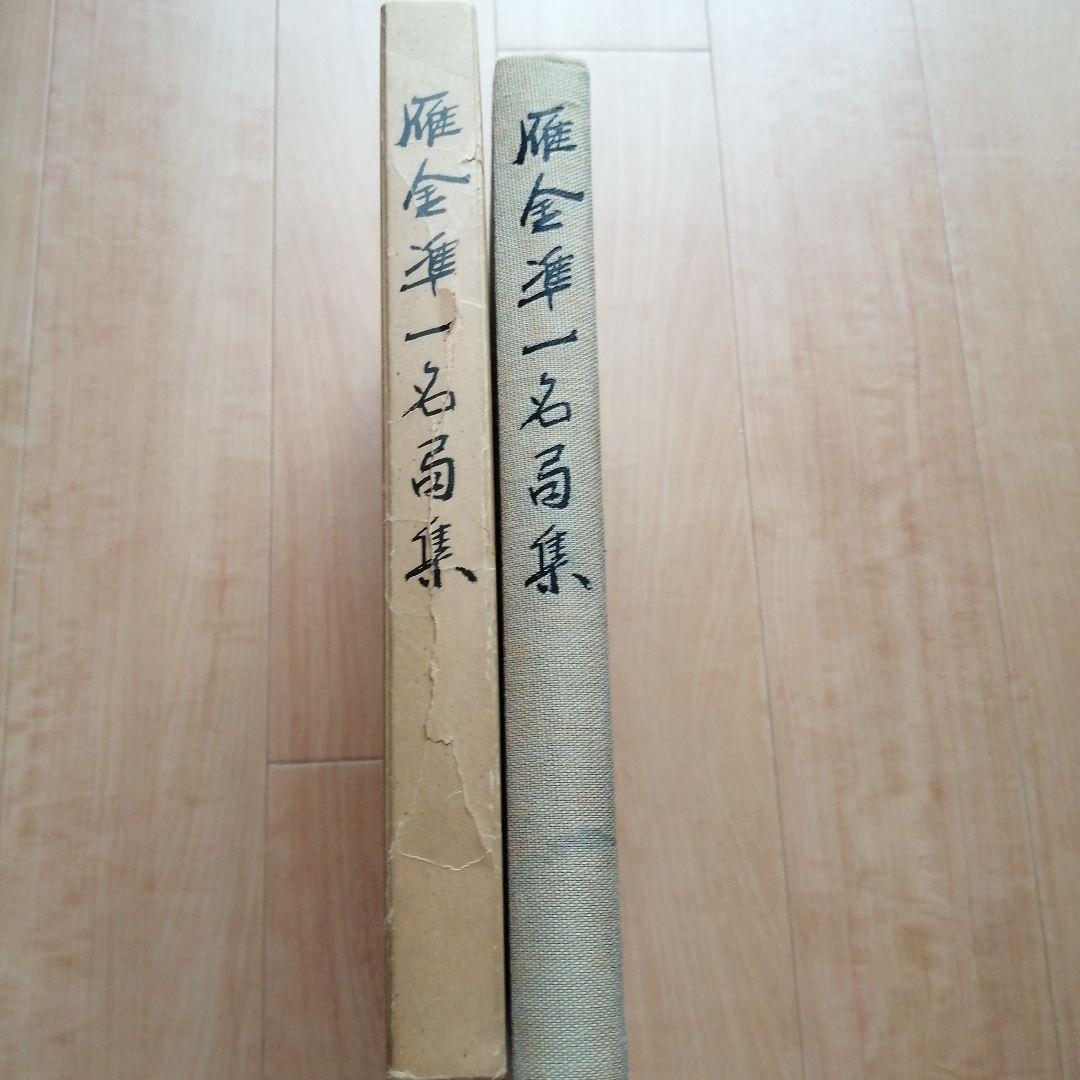 雁金準一名局集
雁金準一名局集